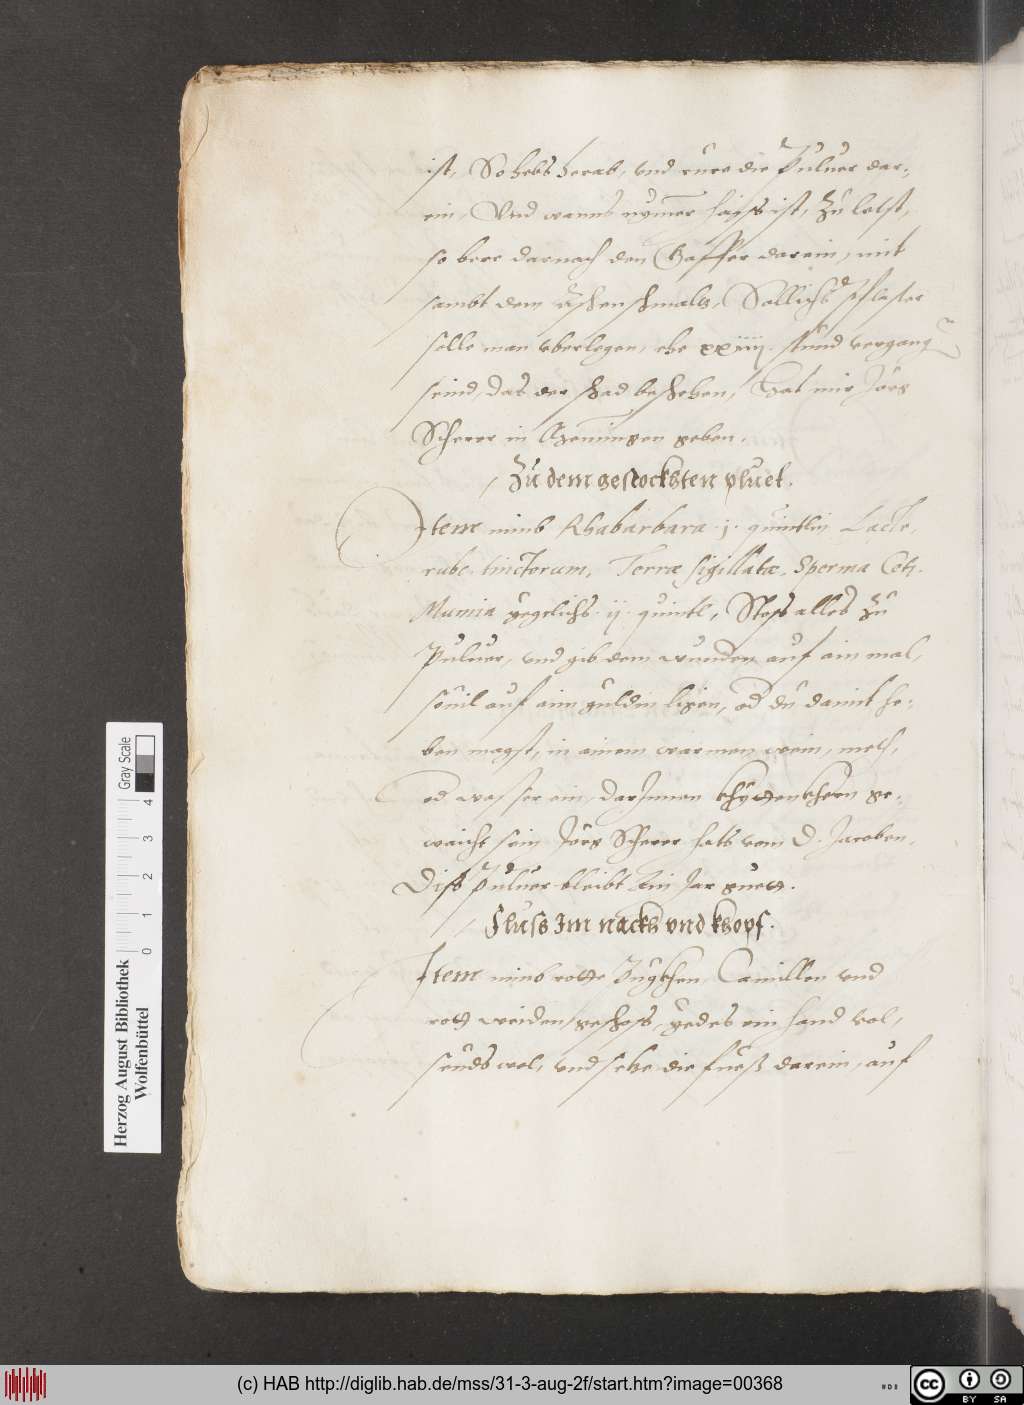 ist, So hebs herab, vnd rüre die Puluer dar¬
ein, Vnd wanns nymer haiss ist, Zu letst,
so bere darnach den Gaffer darein, mit
sambt dem Aschenschmaltz, Sollichs pflaster
solle man vberlegen, ehe xxiiij. stund vergang
seind, das der schad beschehen, Hat mir Jörg
Scherer in Gemingen geben.
Zu dem gestockhten pluet.
Item nimb Rhabarbara .j. quintlin Lacce,
rube tinctorum, Terræ sigillatæ, Sperma Ceti,
Mumia yegclichs .ij. quintl, Stoss alles Zu
Puluer, vnd gib dem wunden auf ain mal,
souil auf aim guldin ligen, od du damit he¬
ben magst, in ainem warmen wein, meth,
od wasser ein, darInnen khüttenkhern ge¬
waicht sein Jörg Scherer hats vom D. Jacoben,
Diss Puluer bleibt Ain Jar guett.
Fluss Im nackh vnd khopf.
Item nimb rotte Bugkhen, Camillen vnd
rott weiden geschoss, yedes ein hand vol,
seuds wol, vnd setze die fuesß darein, auf
Herzog August Bibliothek
Wolfenbüttel
0 1 2 3 4
Gray Scale
(c) HAB http://diglib.hab.de/mss/31-3-aug-2f/start.htm?image=00368
cc BY SA